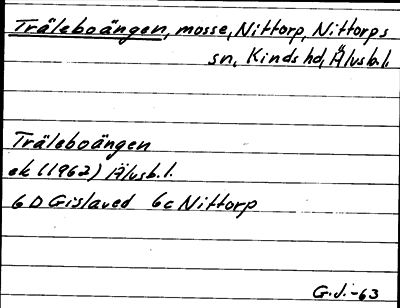 Träleboängen, mosse, Nittorp, Nittorps
sn, Kinds hd, Älvsb.l.
Träleboängen
ek (1962) Älvsb.l.
6 D Gislaved 6c Nittorp
G.J.-63